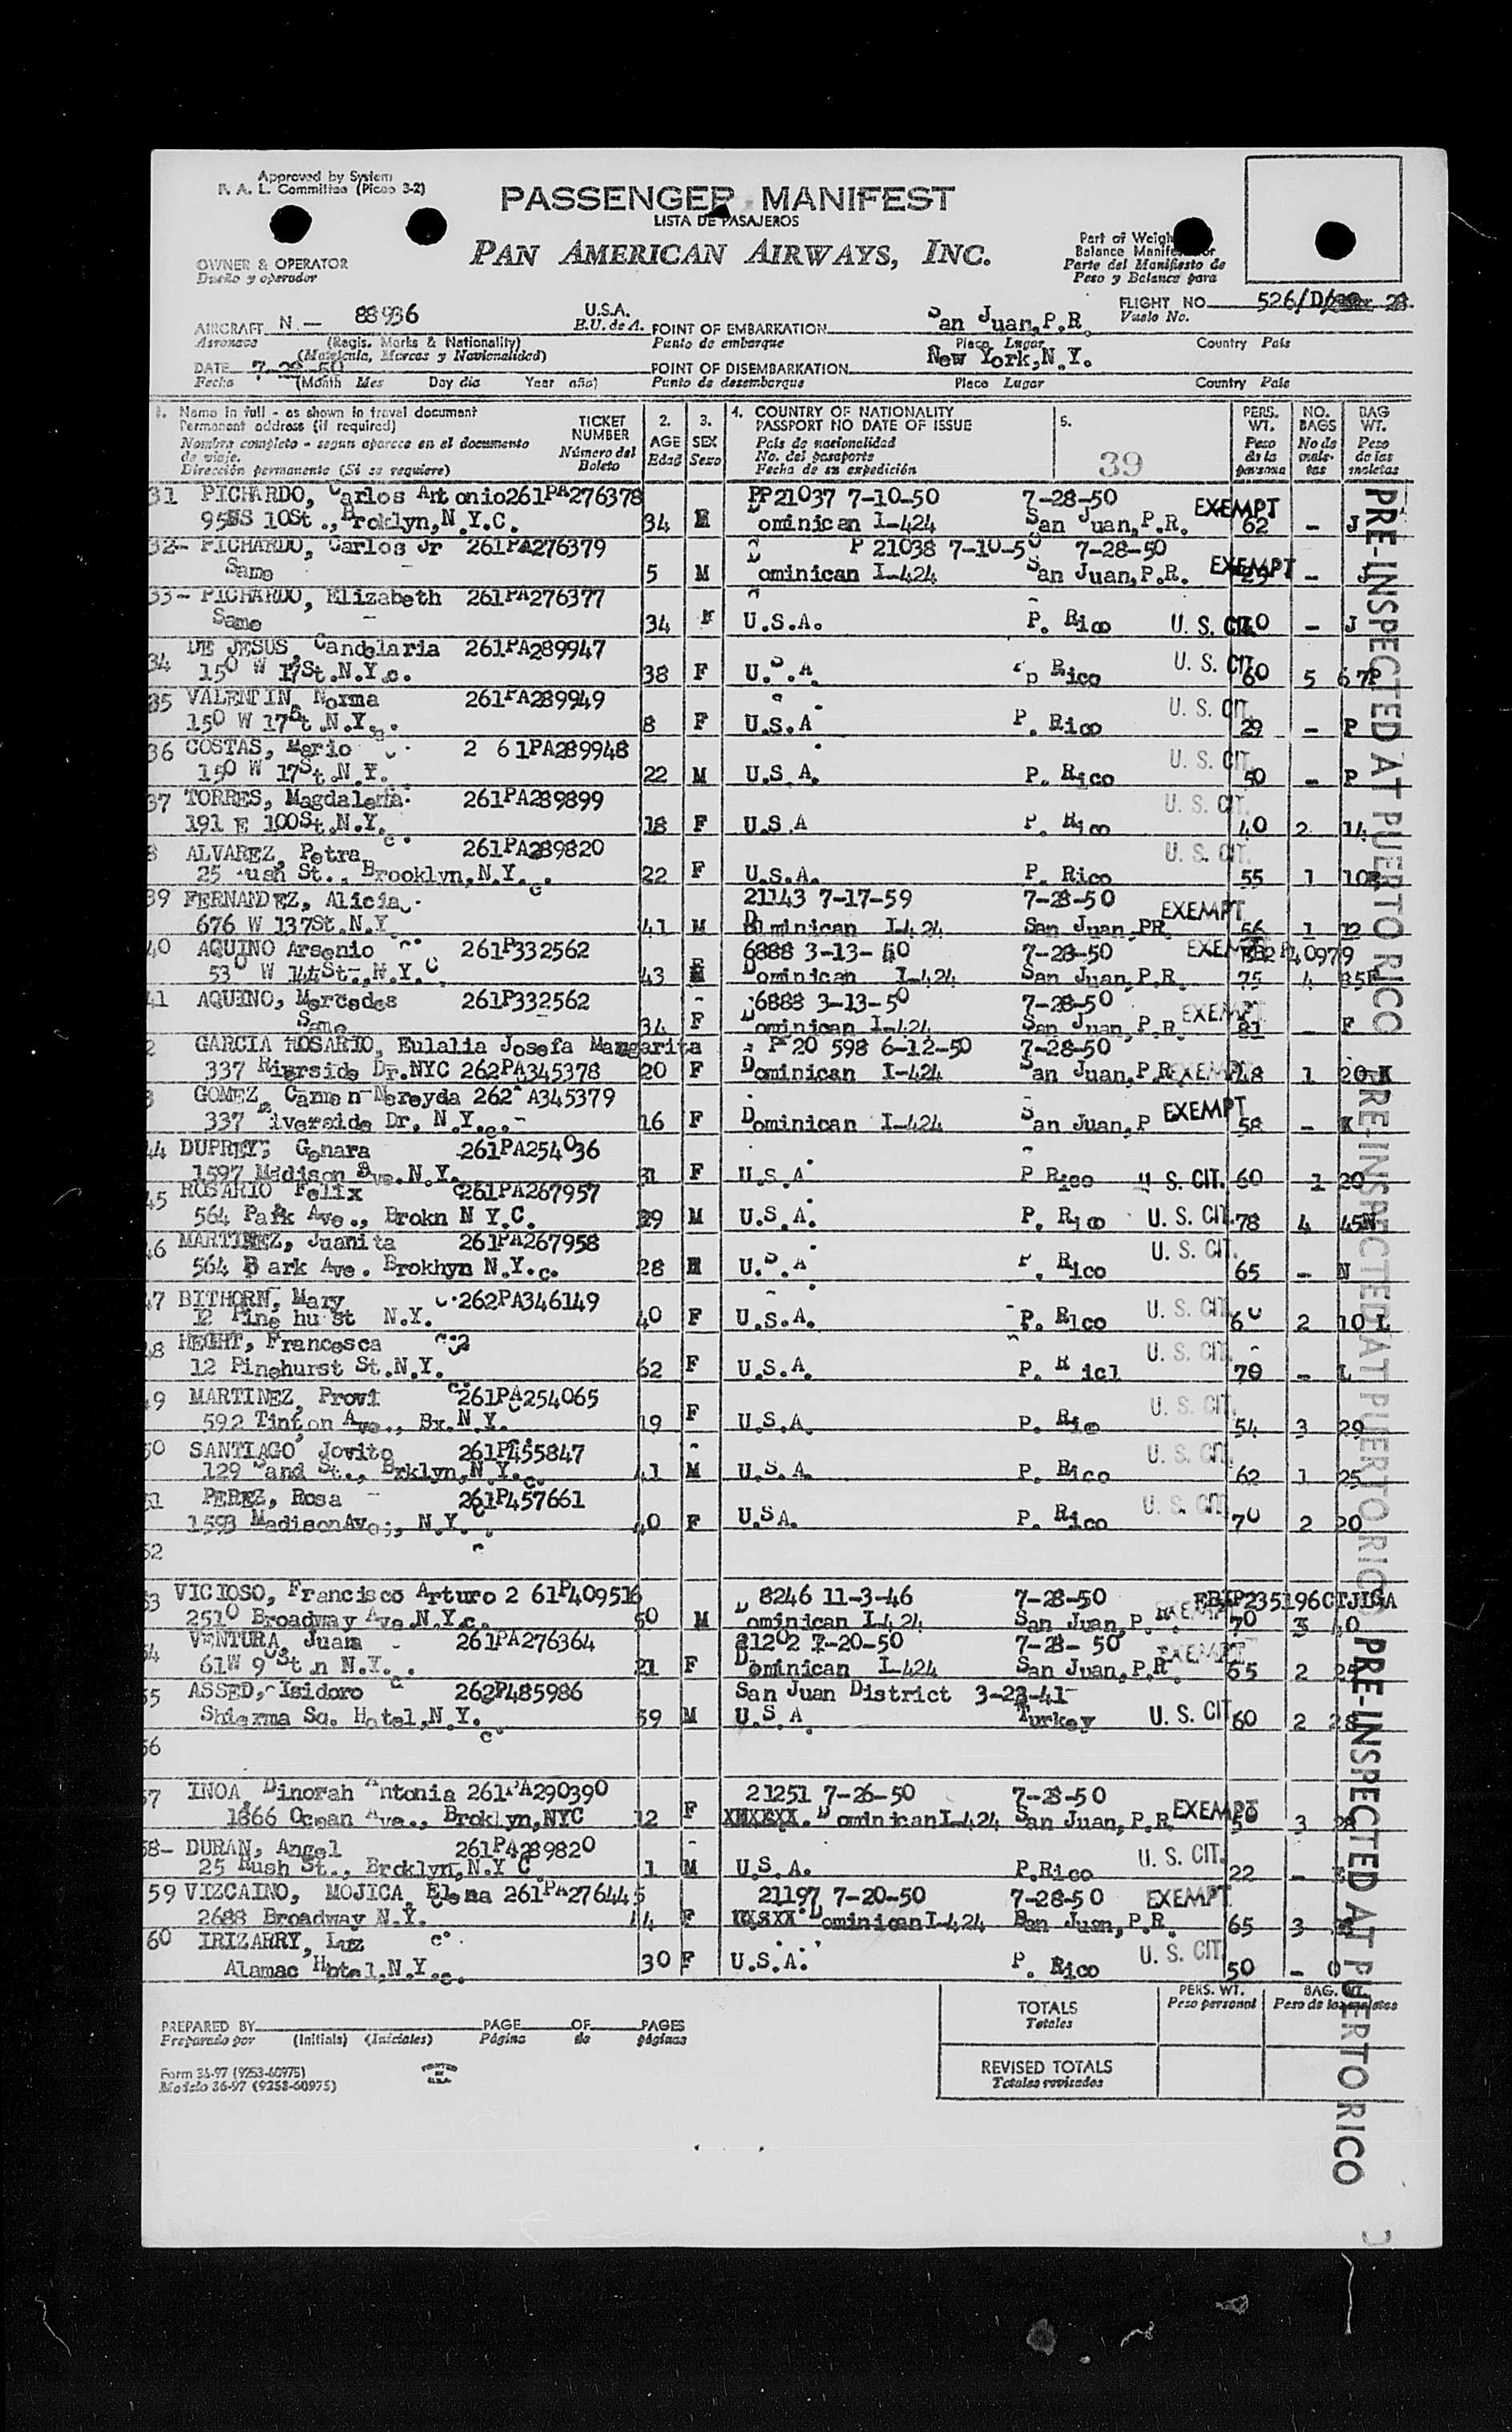 Approved by System
F. A. L. Committee (Picao 3-2)
PASSENGER MANIFEST
LISTA DE PASAJEROS
PAN AMERICAN AIRWAYS, INC.
OWNER & OPERATOR
Dueño y operador
Part of Weigh
Balance Manifest for
Parte del Manifiesto de
Peso y Balance para
FLIGHT NO. 526/D
Vuelo No.
AIRCRAFT N - 88936 U.S.A.
Aeronave (Regis. Marks & Nationality) E.U. de A.
(Matricula, Marcas y Nacionalidad)
POINT OF EMBARKATION San Juan, P.R.
Punto de embarque Place Lugar Country Pais
DATE 7-28-50
Fecha (Month Mes Day dia Year año)
POINT OF DISEMBARKATION New York, N.Y.
Punto de desembarque Place Lugar Country Pais
1. Name in full - as shown in travel document
Permanent address (if required)
Nombre completo - segun aparece en el documento
de viaje.
Dirección permanente (Si se requiere)
TICKET
NUMBER
Número del
Boleto
2.
AGE
Edad
3.
SEX
Sexo
4. COUNTRY OF NATIONALITY
PASSPORT NO DATE OF ISSUE
Pais de nacionalidad
No. del pasaporte
Fecha de su expedición
5.
39
PERS.
WT.
Peso
de la
persona
NO.
BAGS
No de
male-
tas
BAG
WT.
Peso
de las
maletas
31 PICHARDO, Carlos Antonio 261PA276378 PP21037 7-10-50 7-28-50 EXEMPT
10St., Broklyn, N.Y.C. 34 Dominican I-424 San Juan, P.R. 62 - J
32- PICHARDO, Carlos Jr 261PA276379 P 21038 7-10-50 7-28-50
Same 5 M Dominican I-424 San Juan, P.R. EXEMPT - J
33- PICHARDO, Elizabeth 261PA276377
Same 34 F U.S.A. P. Rico U. S. CIT. - J
34 DE JESUS, Candelaria 261PA289947
150 W 17St.N.Y.c. 38 F U.S.A. P Rico U. S. CIT. 60 5 67P
35 VALENTIN, Norma 261PA289949
150 W 17St.N.Y. 8 F U.S.A P. Rico U. S. CIT. 29 - P
36 COSTAS, Mario 261PA289948
150 W 17St.N.Y. 22 M U.S.A. P. Rico U. S. CIT. 50 - P
37 TORRES, Magdalena 261PA289899
191 E 100St.N.Y.c. 18 F U.S.A P. Rico U. S. CIT. 40 2 14
8 ALVAREZ, Petra 261PA289820
25 ush St., Brooklyn, N.Y.c. 22 F U.S.A. P. Rico U. S. CIT. 55 1 10
39 FERNANDEZ, Alicia 21143 7-17-59 7-28-50 EXEMPT
676 W 137St.N.Y. 41 M Dominican I-424 San Juan PR. 56 1 12
40 AQUINO Arsenio 261P332562 6888 3-13-50 7-28-50 EXEMPT
530 W 144St., N.Y.C. 43 Dominican I-424 San Juan, P.R. 75 4 35F
41 AQUINO, Mercedes 261P332562 6888 3-13-50 7-28-50 EXEMPT
Same 34 F Dominican I-424 San Juan, P.R. 81 - F
2 GARCIA ROSARIO, Eulalia Josefa Margarita P 20 598 6-12-50 7-28-50
337 Riverside Dr.NYC 262PA345378 20 F Dominican I-424 San Juan, P.R. EXEMPT 48 1 20 K
3 GOMEZ, Carmen Nereyda 262PA345379
337 Riverside Dr. N.Y.c. 16 F Dominican I-424 San Juan, P EXEMPT 58 - K
44 DUPREY, Genara 261PA254036
1597 Madison Ave. N.Y. 31 F U.S.A P Rico U. S. CIT. 60 1 20
45 ROSARIO Felix 261PA267957
564 Park Ave., Brokn N Y.C. 39 M U.S.A. P. Rico U. S. CIT. 78 4 45N
46 MARTINEZ, Juanita 261PA267958
564 Park Ave. Brokhyn N.Y.c. 28 U.S.A P. Rico U. S. CIT. 65 - N
47 BITHORN, Mary 262PA346149
12 Pine hu st N.Y. 40 F U.S.A. P. Rico U. S. CIT. 60 2 10 L
48 HECHT, Francesca
12 Pinehurst St.N.Y. 62 F U.S.A. P. Ricl U. S. CIT. 70 - L
49 MARTINEZ, Provi 261PA254065
592 Tinton Ave., Bx. N.Y. 19 F U.S.A. P. Rico U. S. CIT. 54 3 29
50 SANTIAGO Jovito 261P455847
129 Sand St., Brklyn, N.Y.c. 41 M U.S.A. P. Rico U. S. CIT. 62 1 25
51 PEREZ, Rosa 261P457661
1593 MadisonAve;, N.Y. 40 F U.SA. P. Rico U. S. CIT. 70 2 20
52
53 VICIOSO, Francisco Arturo 261P409516 8246 11-3-46 7-28-50
2510 Broadway Ave.N.Y.c. 50 M Dominican I-424 San Juan, P. EXEMPT 70 3 40
54 VENTURA, Juana 261PA276364 21202 7-20-50 7-28-50 EXEMPT
61W 9 St N.Y. 21 F Dominican I-424 San Juan, P.R. 65 2 25
55 ASSED, Isidoro 262P485986 San Juan District 3-23-41
Sherma Sq. Hotel, N.Y.c 59 M U.S.A Turkey U. S. CIT 60 2 28
56
57 INOA, Dinorah Antonia 261PA290390 21251 7-26-50 7-28-50
1866 Ocean Ave., Broklyn, NYC 12 F Dominican I-424 San Juan, P.R. EXEMPT 50 3 28
58- DURAN, Angel 261PA289820
25 Rush St., Broklyn, N.Y C 1 M U.S.A. P.Rico U. S. CIT. 22 -
59 VIZCAINO, MOJICA, Elena 261PA276445 21197 7-20-50 7-28-50 EXEMPT
2688 Broadway N.Y. 44 F Dominican I-424 San Juan, P.R. 65 3
60 IRIZARRY, Luz
Alamac Hotel, N.Y.c. 30 F U.S.A. P. Rico U. S. CIT. 50 - 0
PRE-INSPECTED AT PUERTO RICO
PRE-INSPECTED AT PUERTO RICO
PRE-INSPECTED AT PUERTO RICO
TOTALS
Totales
PERS. WT.
Peso personal
BAG. WT.
Peso de las maletas
REVISED TOTALS
Totales revisados
PREPARED BY PAGE OF PAGES
Preparado por (Initials) (Iniciales) Página de páginas
Form 36-97 (9253-60975)
Modelo 36-97 (9253-60975)
PRINTED
IN
U.S.A.